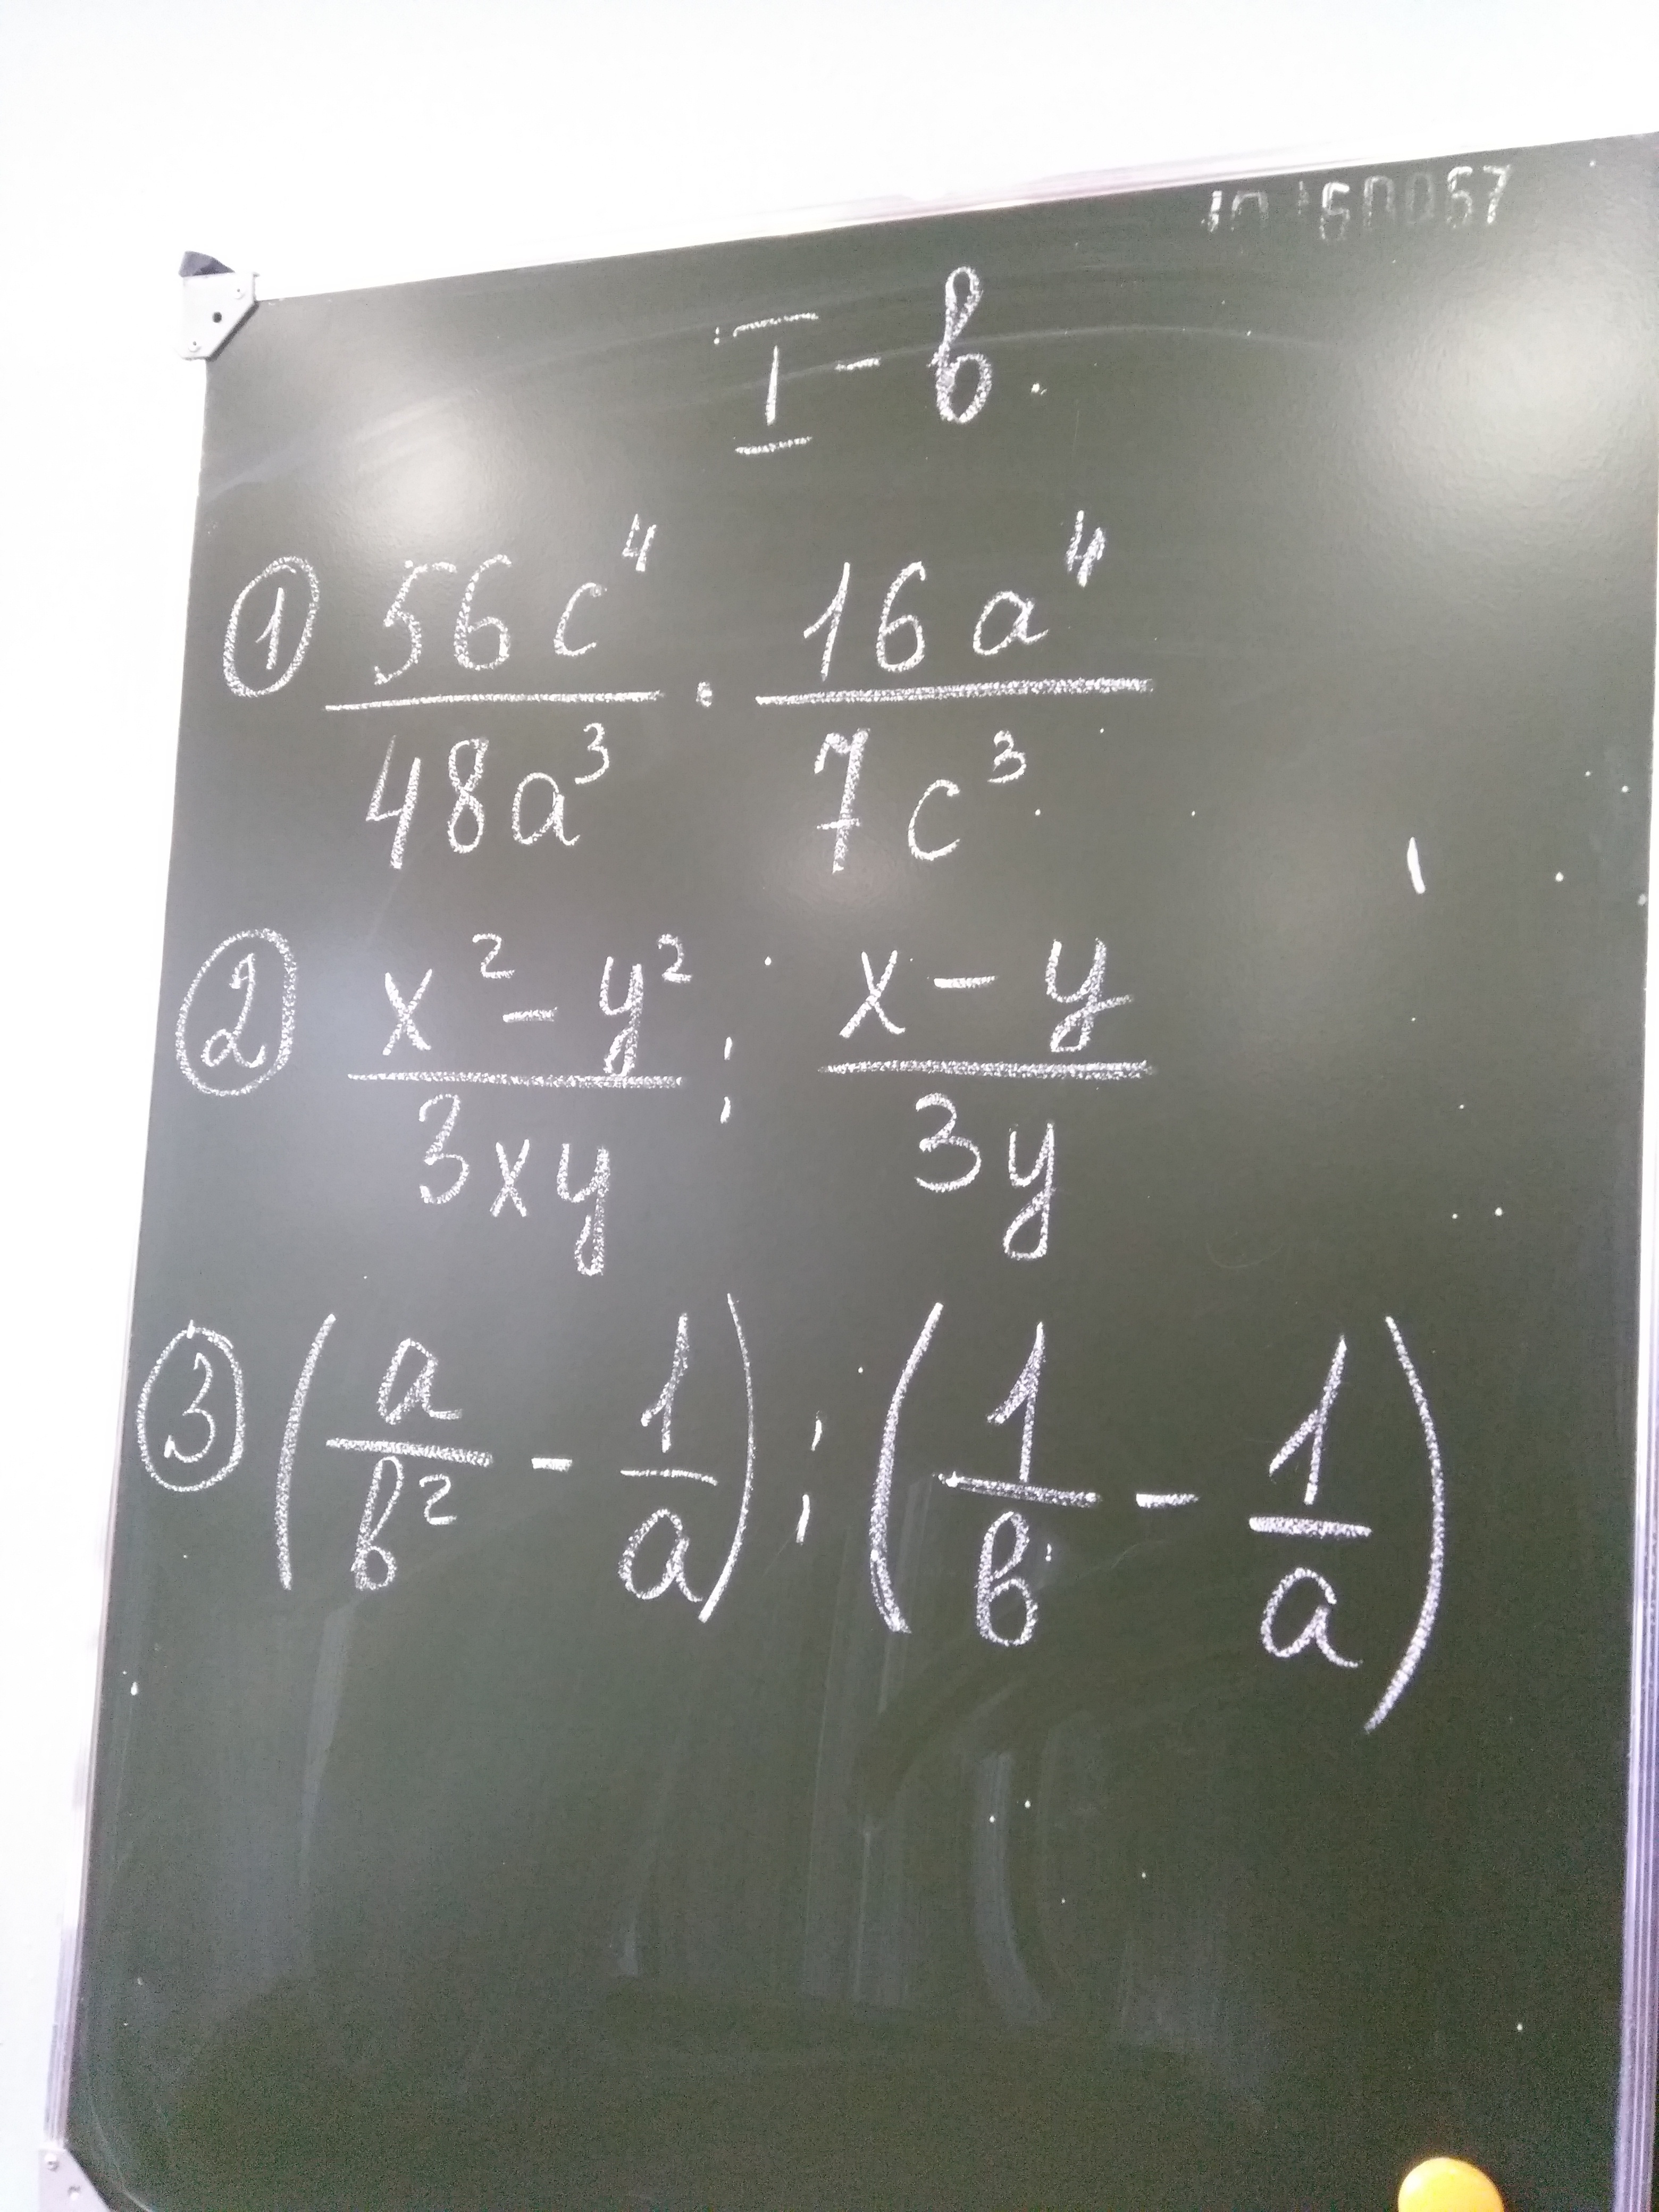 I - в.
① \frac{56c^4}{48a^3} \cdot \frac{16a^4}{7c^3}
② \frac{x^2 - y^2}{3xy} : \frac{x - y}{3y}
③ \left(\frac{a}{b^2} - \frac{1}{a}\right) : \left(\frac{1}{b} - \frac{1}{a}\right)